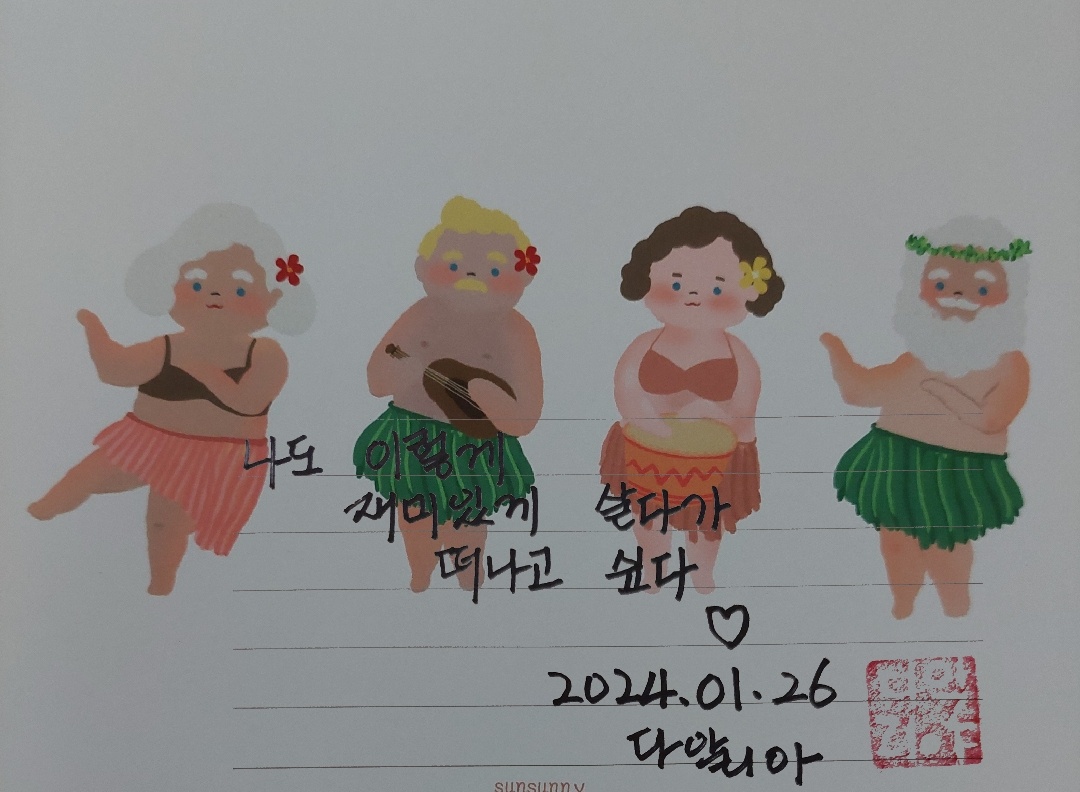 나도 이렇게
재미있게 살다가
떠나고 싶다
♡
2024.01.26
다알리아
sunsunny